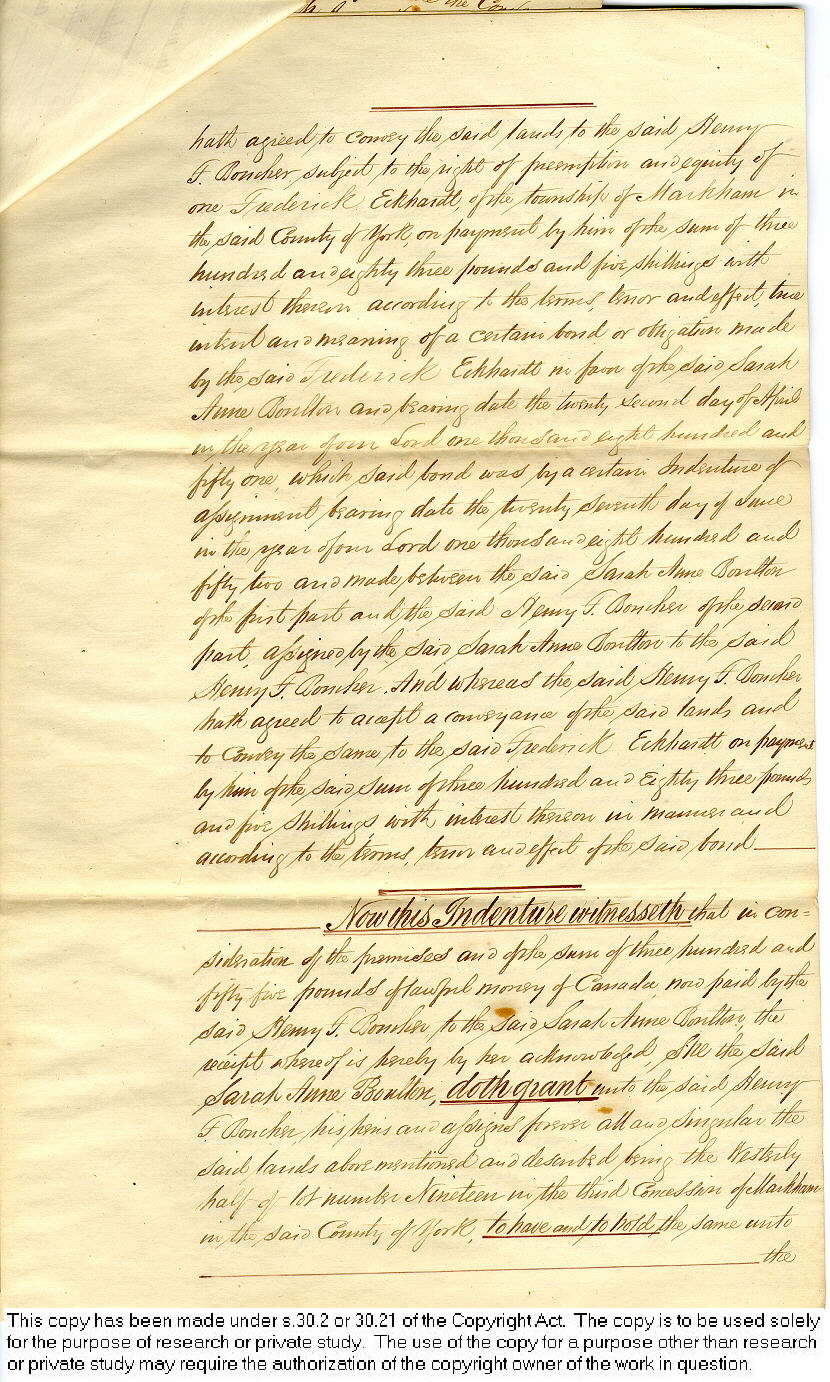 hath agreed to convey the said lands to the said Henry
F. Boucher, subject to the right of preemption and equity of
one Frederick Eckhardt, of the township of Markham in
the said County of York, on payment by him of the sum of three
hundred and eighty three pounds and five shillings with
interest thereon according to the terms, tenor and effect, true
intent and meaning of a certain bond or obligation made
by the said Frederick Eckhardt in favor of the said Sarah
Anne Boulton and bearing date the twenty second day of April
in the year of our Lord one thousand eight hundred and
fifty one, which said bond was by a certain Indenture of
assignment bearing date the twenty seventh day of June
in the year of our Lord one thousand eight hundred and
fifty two and made between the said Sarah Anne Boulton
of the first part and the said Henry F. Boucher of the second
part, assigned by the said Sarah Anne Boulton to the said
Henry F. Boucher. And whereas the said Henry F. Boucher
hath agreed to accept a conveyance of the said lands and
to convey the same to the said Frederick Eckhardt on payment
by him of the said sum of three hundred and eighty three pounds
and five shillings with interest thereon in manner and
according to the terms, tenor and effect of the said bond
Now this Indenture witnesseth that in con=
sideration of the premises and of the sum of three hundred and
fifty five pounds of lawful money of Canada, now paid by the
said Henry F. Boucher to the said Sarah Anne Boulton, the
receipt whereof is hereby by her acknowledged, She the said
Sarah Anne Boulton, doth grant unto the said Henry
F. Boucher, his heirs and assigns forever all and singular the
said lands above mentioned and described being the Westerly
half of lot number Nineteen in the third Concession of Markham
in the said County of York, to have and to hold the same unto
the
This copy has been made under s.30.2 or 30.21 of the Copyright Act. The copy is to be used solely
for the purpose of research or private study. The use of the copy for a purpose other than research
or private study may require the authorization of the copyright owner of the work in question.